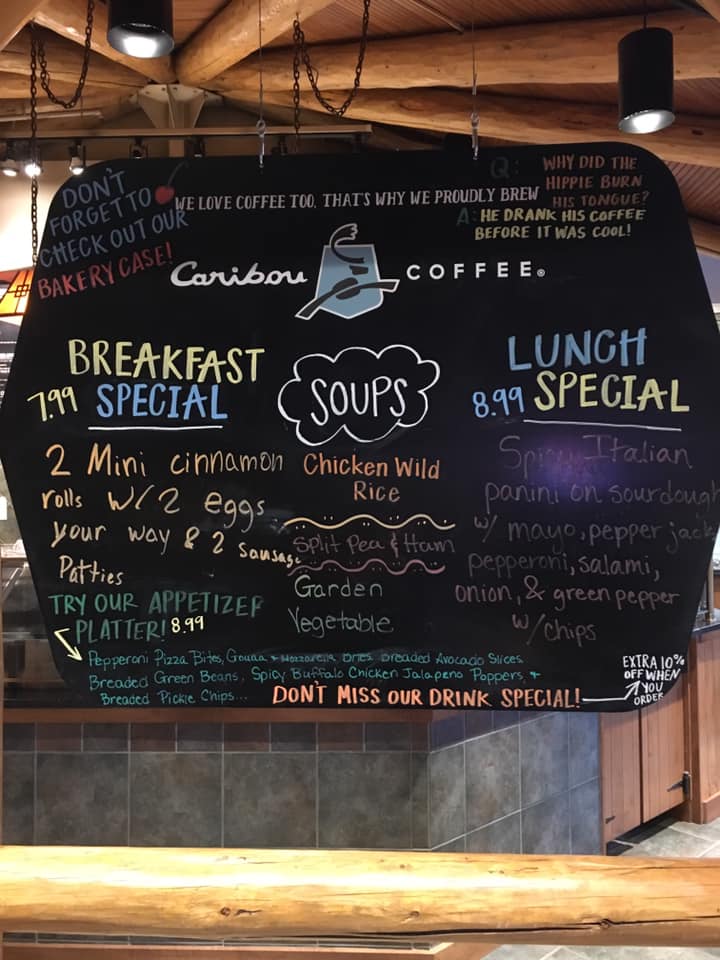 DON'T
FORGET TO
CHECK OUT OUR
BAKERY CASE!
WE LOVE COFFEE TOO, THAT'S WHY WE PROUDLY BREW
Q: WHY DID THE
HIPPIE BURN
HIS TONGUE?
A: HE DRANK HIS COFFEE
BEFORE IT WAS COOL!
Caribou COFFEE®
BREAKFAST
7.99 SPECIAL
2 Mini cinnamon
rolls w/ 2 eggs
your way & 2 sausage
Patties
TRY OUR APPETIZER
PLATTER! 8.99
SOUPS
Chicken Wild
Rice
Split Pea & Ham
Garden
Vegetable
LUNCH
8.99 SPECIAL
Spicy Italian
panini on sourdough
w/ mayo, pepper jack
pepperoni, salami,
onion, & green pepper
w/chips
Pepperoni Pizza Bites, Gouda + Mozzarella Bites Breaded Avocado Slices
Breaded Green Beans, Spicy Buffalo Chicken Jalapeno Poppers, +
Breaded Pickle Chips...
DON'T MISS OUR DRINK SPECIAL!
EXTRA 10%
OFF WHEN
YOU
ORDER